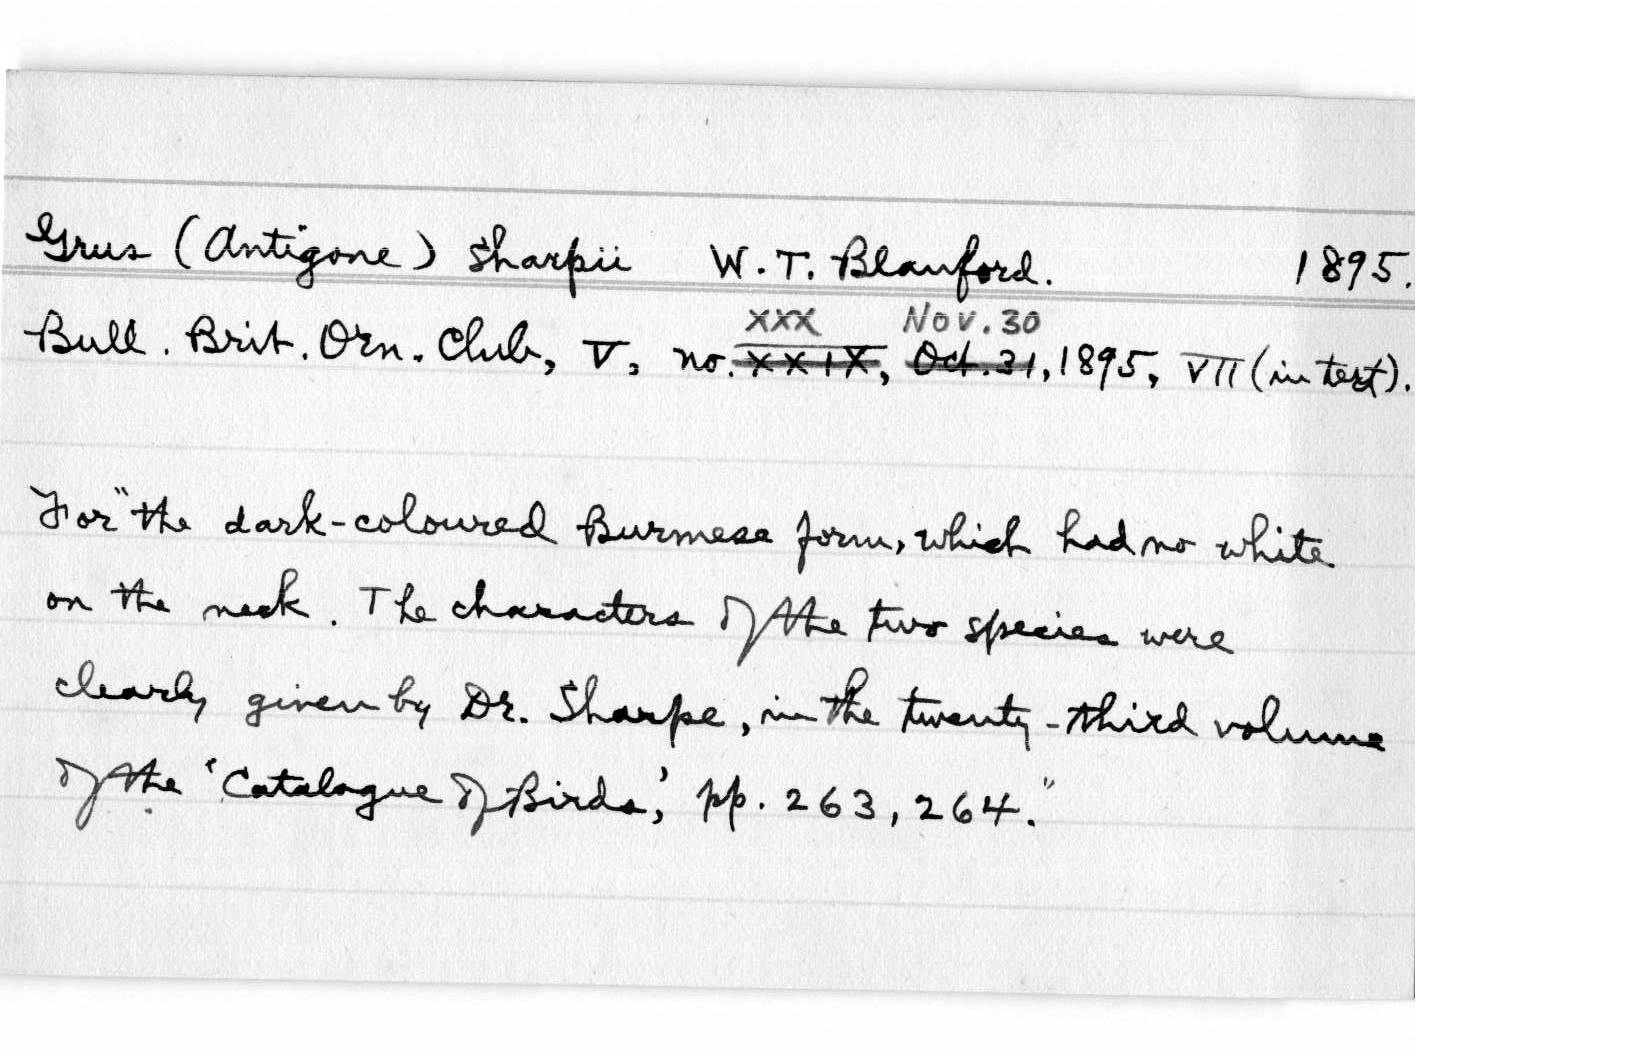 Grus (Antigone) sharpii W. T. Blanford. 1895.
XXX Nov. 30
Bull. Brit. Orn. Club, V, no. XXIX, Oct. 31, 1895, VII (in text).
For "the dark-coloured Burmese form, which had no white
on the neck. The characters of the two species were
clearly given by Dr. Sharpe, in the twenty-third volume
of the 'Catalogue of Birds,' pp. 263, 264."